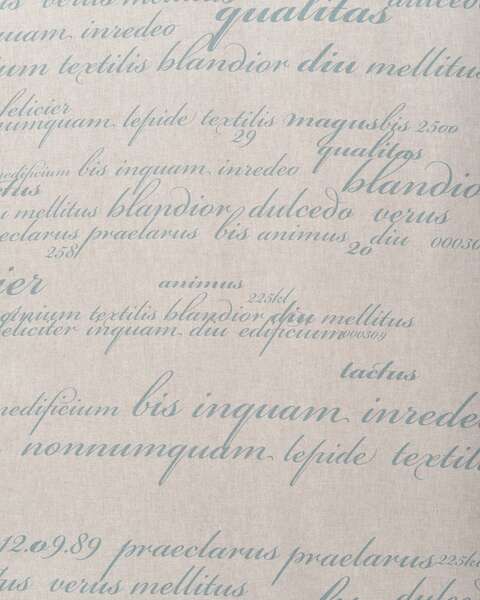 qualitas
quam inredeo
um textilis blandior diu mellitus
felicier
numquam lepide textilis magus bis 2500
29
qualitas
nedificium bis inquam inredeo
blandio
ctus
mellitus blandior dulcedo verus
eclarus praelarus bis animus diu 000309
258
20
ier
animus
225kl
ginium textilis blandior diu mellitus
eliciter inquam diu edificium 000309
tactus
nedificium bis inquam inrede
nonnumquam lepide textil
12.09.89 praeclarus praeclarus 225kl
tus verus mellitus